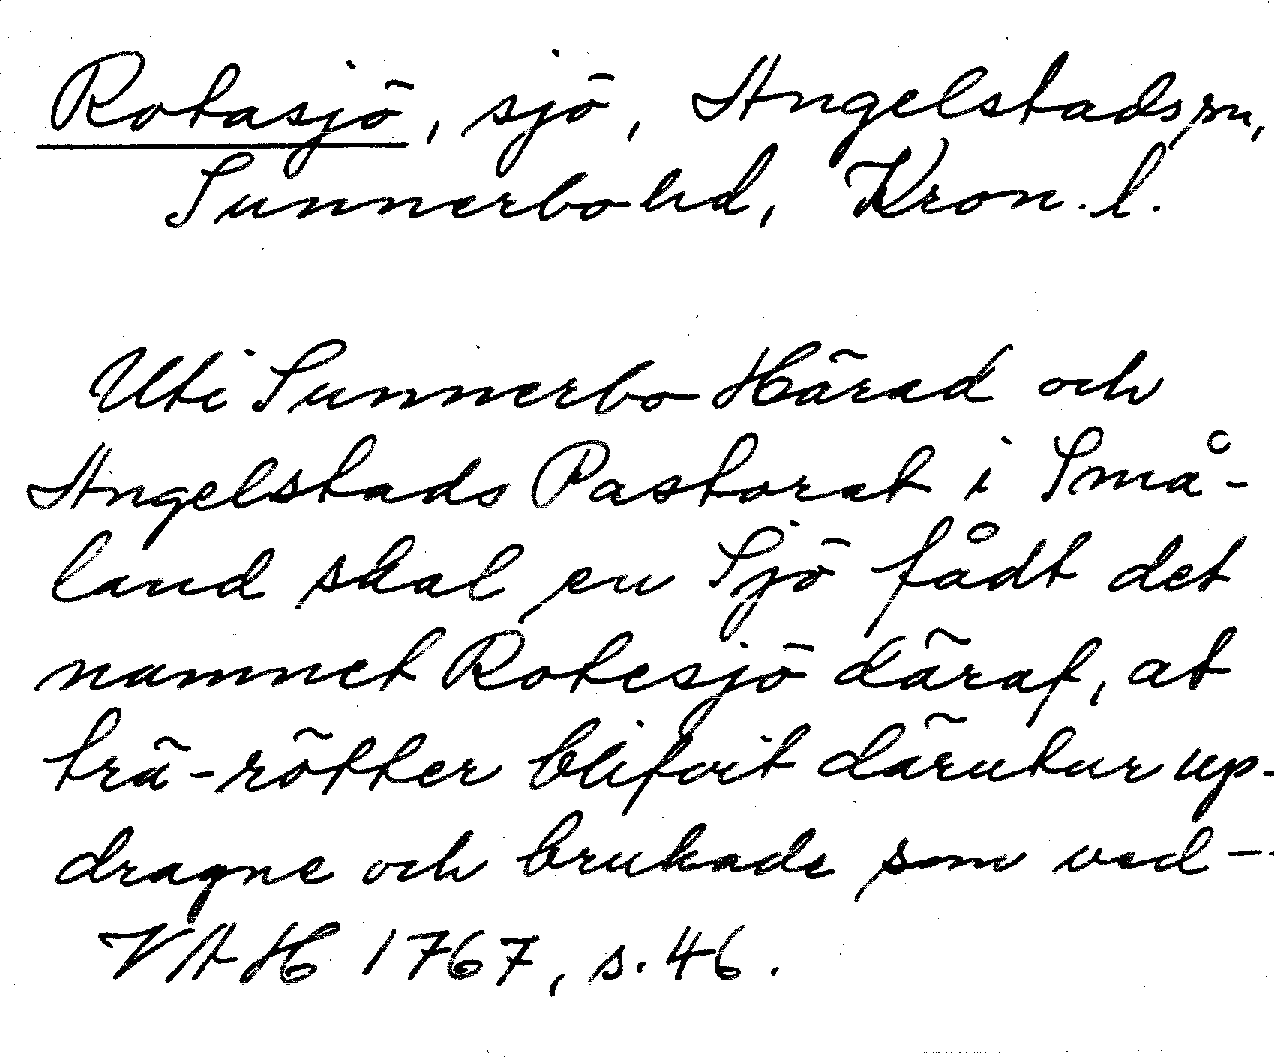 Rotasjö, sjö, Angelstads sn,
Sunnerbo hd, Kron. l.
Uti Sunnerbo Härad och
Angelstads Pastorat i Små-
land skal en Sjö fådt det
namnet Rotesjö däraf, at
trä-rötter blifvit därutur up-
dragne och brukade som ved--
VAH 1767, s. 46.